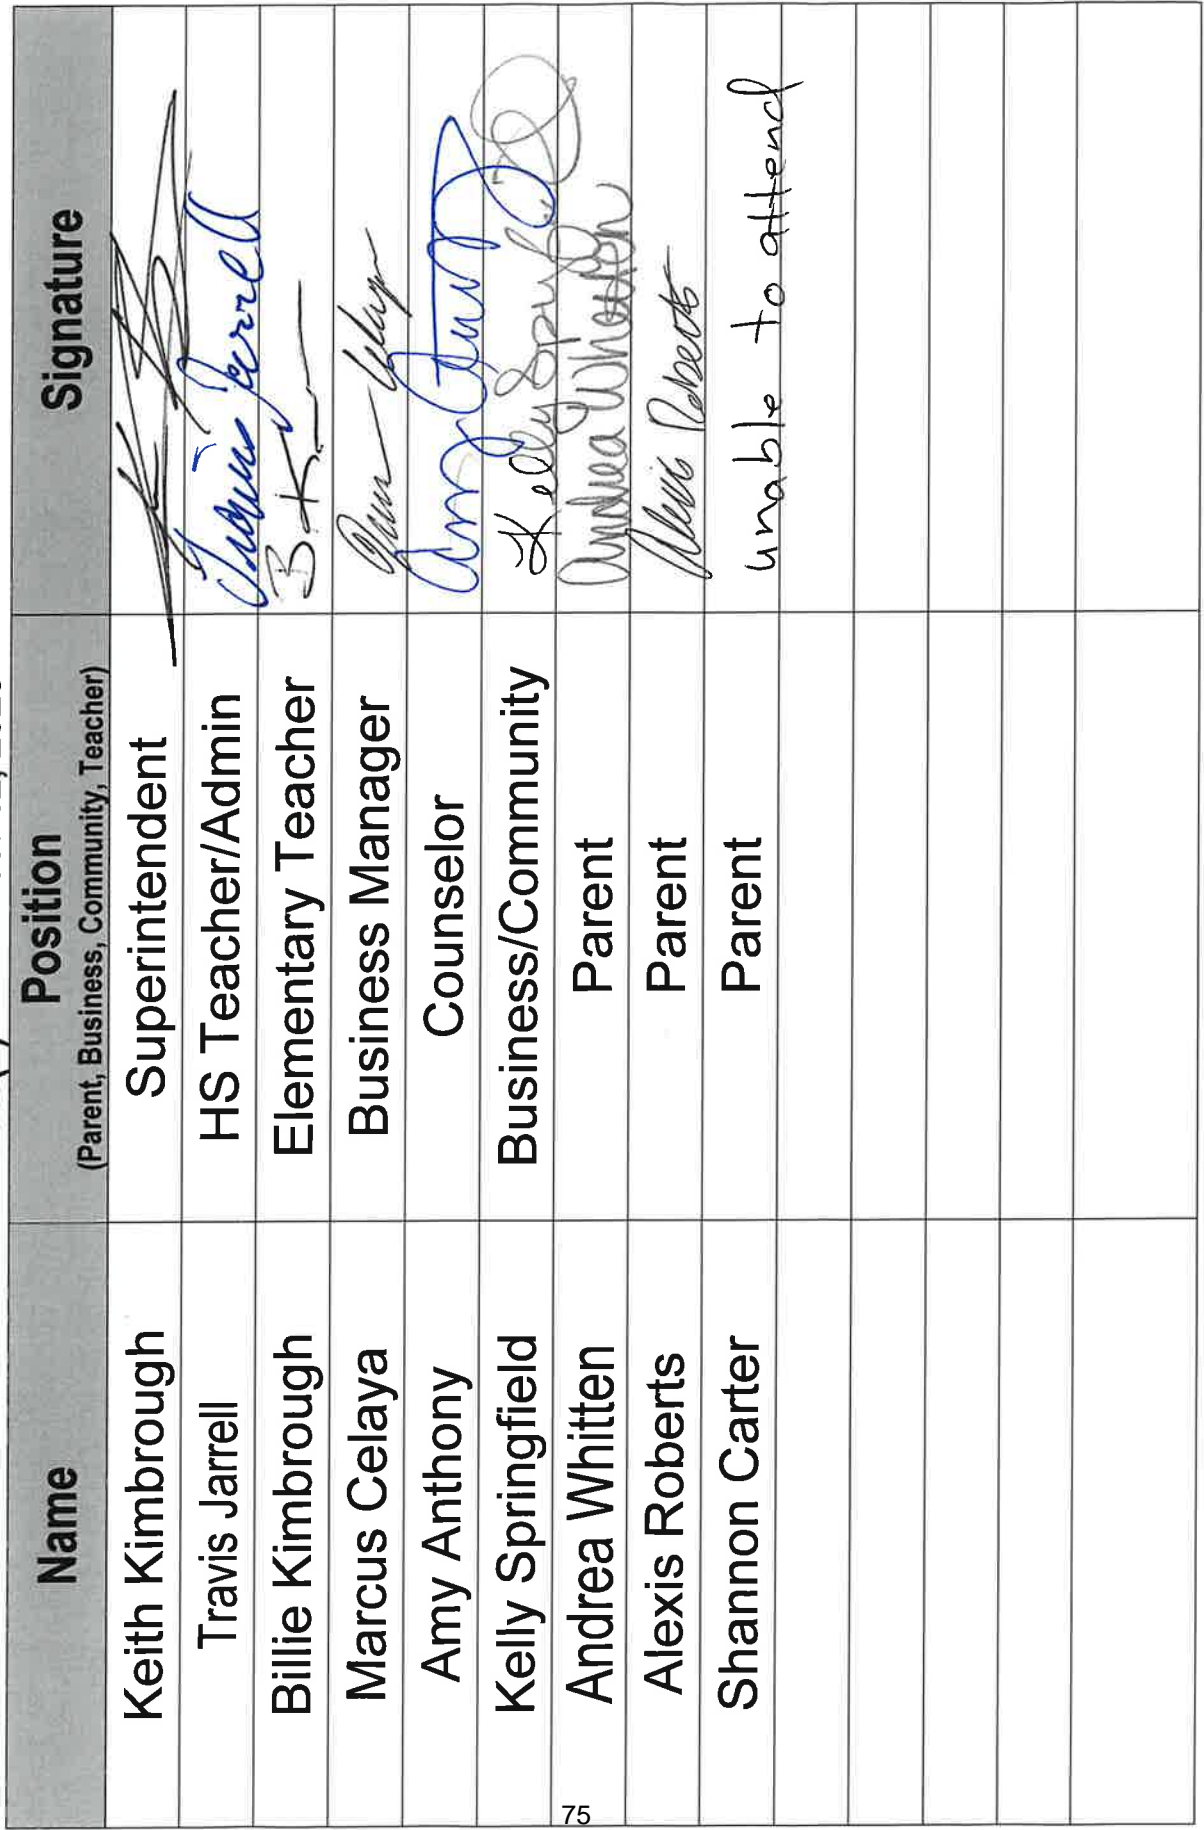 Name Position Signature
(Parent, Business, Community, Teacher)
Keith Kimbrough Superintendent
Travis Jarrell HS Teacher/Admin Travis Jarrell
Billie Kimbrough Elementary Teacher B K
Marcus Celaya Business Manager
Amy Anthony Counselor
Kelly Springfield Business/Community Kelly
Andrea Whitten Parent Andrea Whitten
Alexis Roberts Parent Alexis Roberts
Shannon Carter Parent unable to attend
75